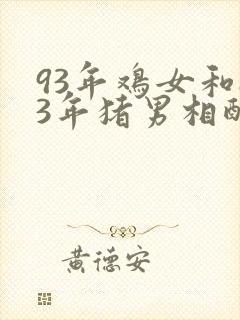 93年鸡女和
3年猪男相配
黄德安